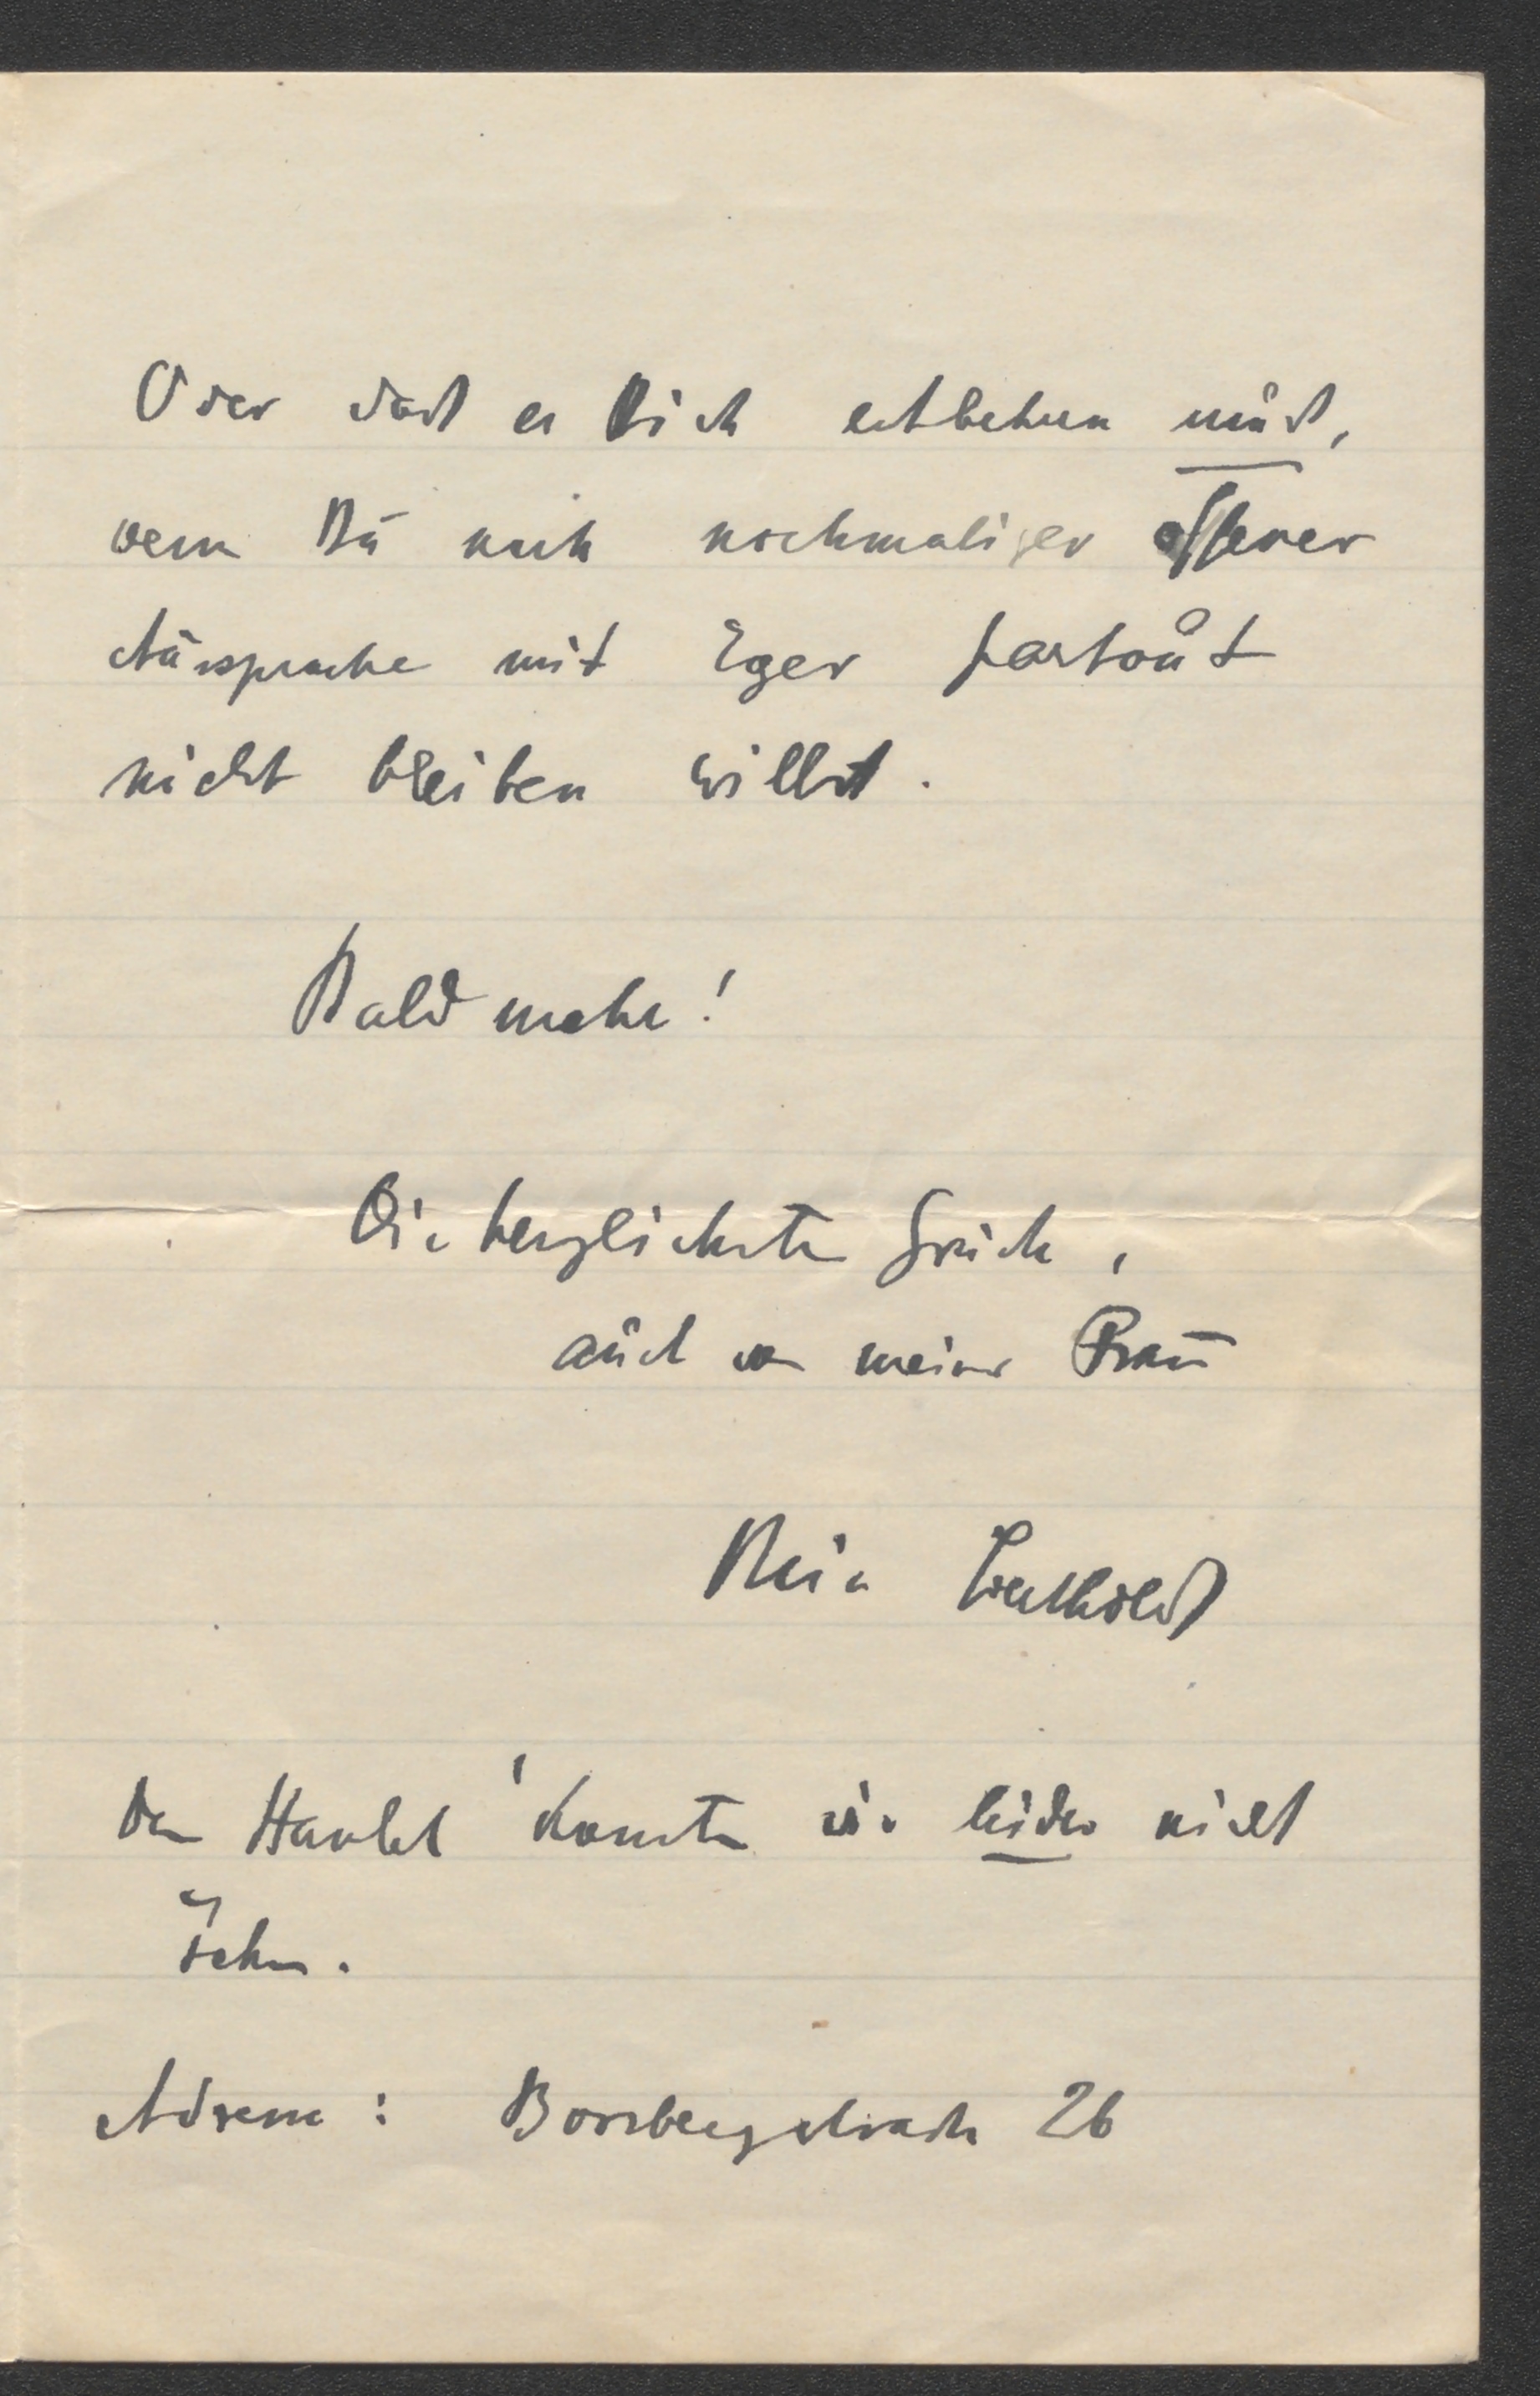 Oder daß er Dich entbehren muß,
wenn Du nach nochmaliger offener
Aussprache mit Eger partout
nicht bleiben willst.
Bald mehr!
Die herzlichsten Grüße,
auch von meiner Frau
Dein
Den Hamlet konnten wir leider nicht
sehen.
Adresse: Borsbergstraße 26